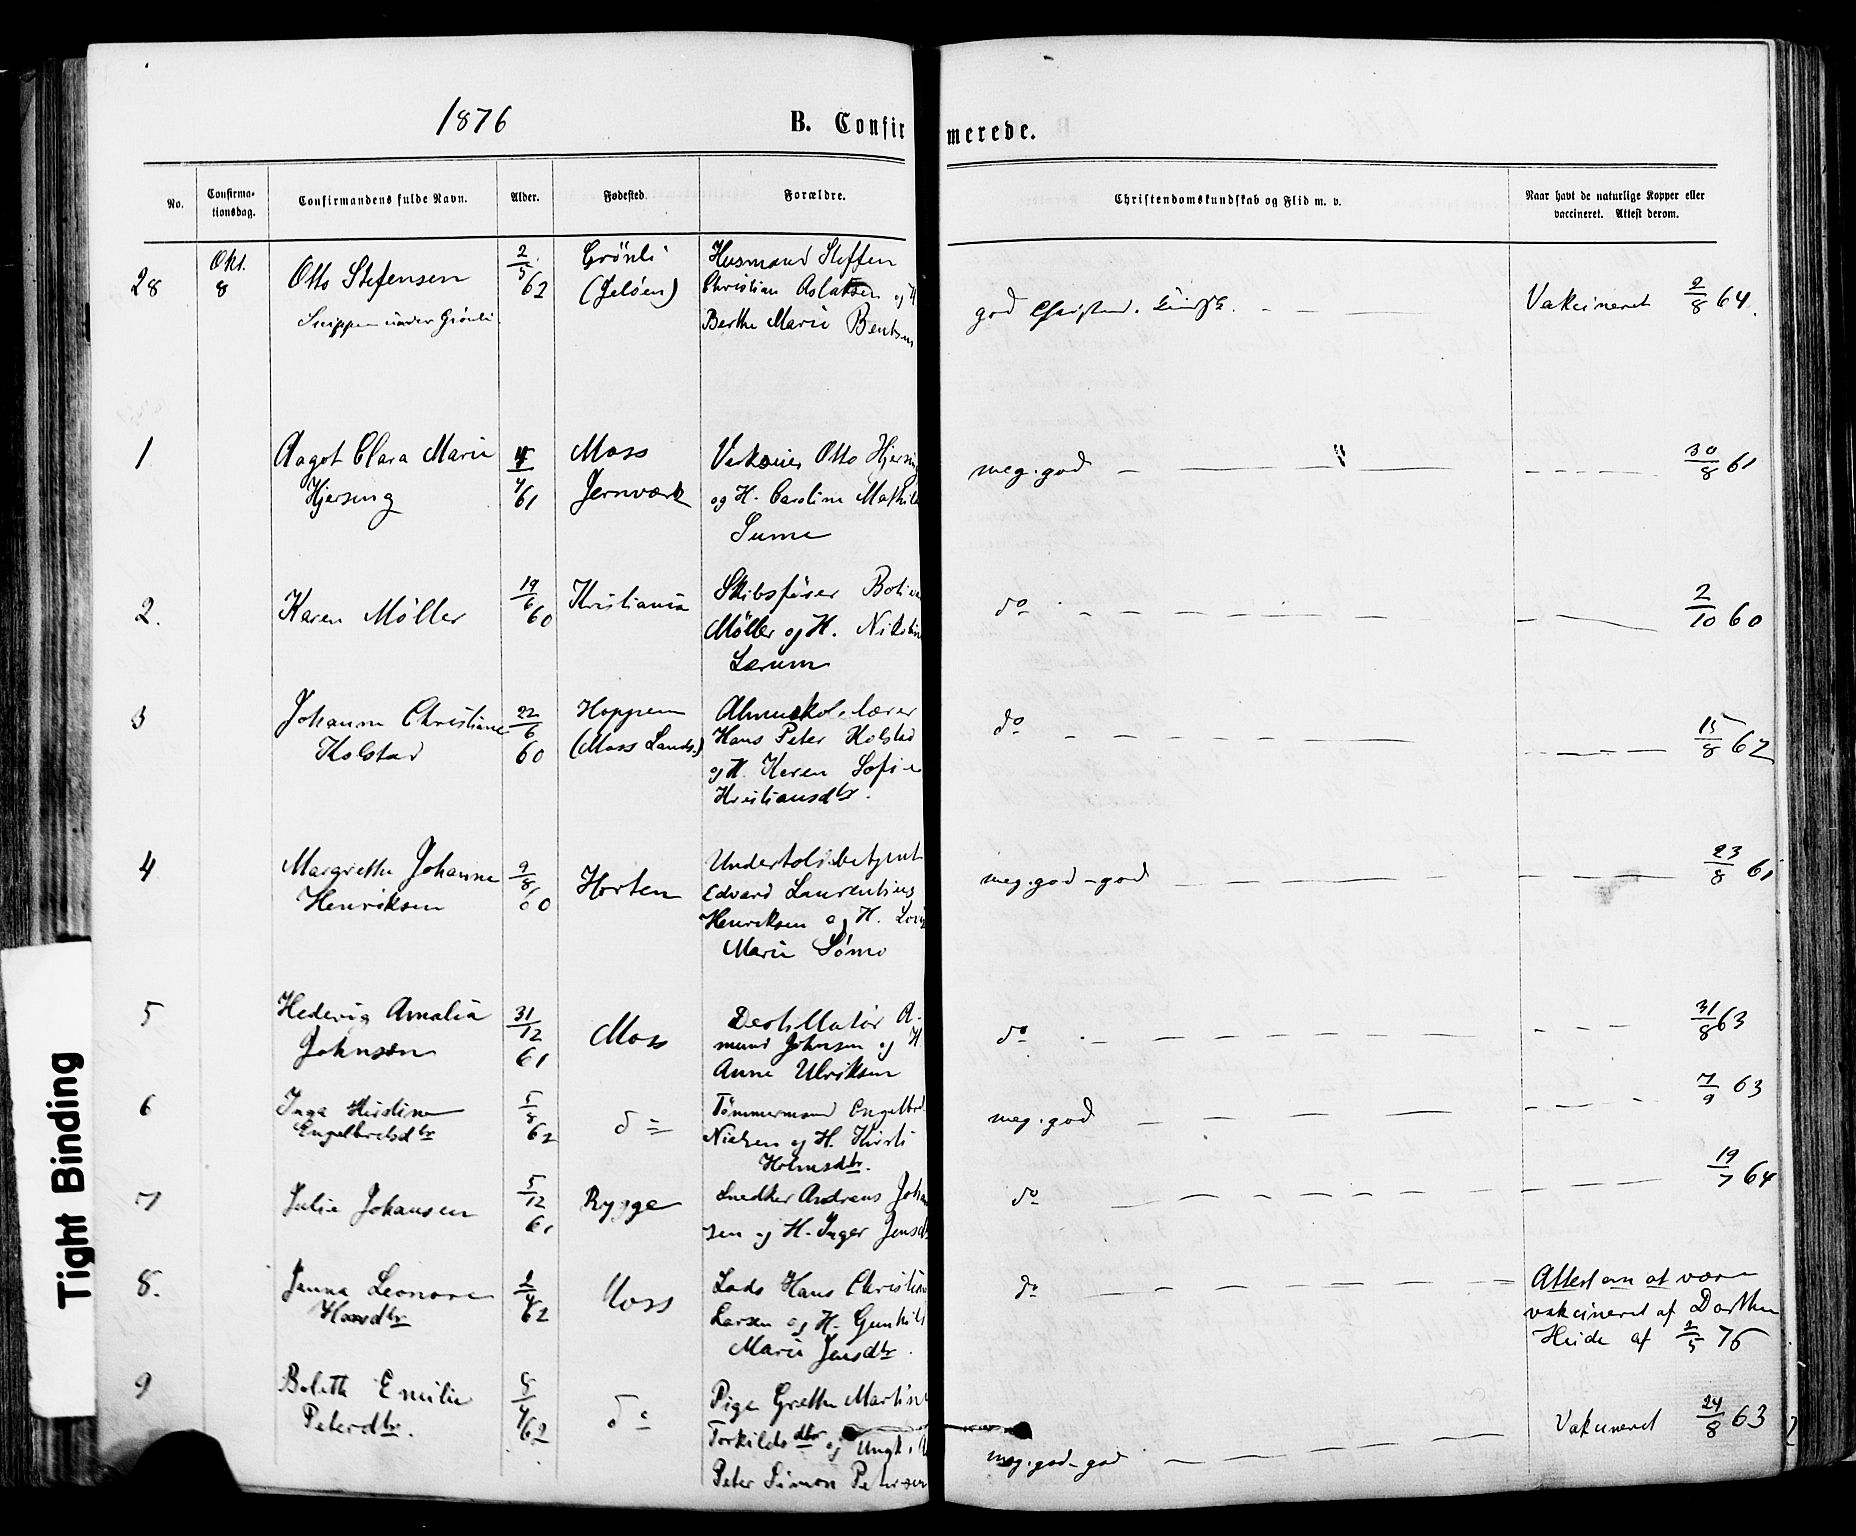 1876
B. Confirmerede.
No.
Confirma-
tionsdag.
Confirmandens fulde Navn.
Alder.
Fødested.
Forældre.
Christendomskundskab og Flid m. v.
Naar havt de naturlige Kopper eller
vaccineret. Attest derom.
28
Okt.
8
Otto Stefensen
under Grönli
2/5 62
Grönli
(Jelöen)
Husmand Steffen
Christian Aslaksen og H
Berthe Marie Bentsen
god Christend.
Vakcineret 2/8 64.
1
Aagot Clara Marie
Hjersing
4/61
Moss
Jernværk
Otto Hjersing
og H. Caroline Mathil
Sume
meg. god
30/8 61
2.
Karen Möller
19/6 60
Kristiania
Skibsfører
Möller og H.
Lærum
do
2/10 60
3
Johanne Christiane
Kolstad
22/6 60
Hoppern
(Moss Lands.)
Almueskol. lærer
Hans Peter Kolstad
og H. Karen Sofie
Kristiansdtr.
do
15/8 62
4
Margrethe Johanne
Henriksen
9/8 60
Horten
Undertolbetjent
Edvard Laurentius
Henriksen og H.
Marie Sømo
meg. god - god
23/8 61
5
Hedevig Amalia
Johnsen
31/12 61
Moss
Destillatör A-
mund Johnsen og H
Anne Ulriksen
do
31/8 63
6
Inga Kirstine
Engelbretsdtr
5/8 62
do
Tømmermand Engelbret
Nielsen og H. Kirsti
Holmsdtr.
meg. god
7/9 63
7
Julie Johansen
5/12 61
Rygge
Snedker Andreas Johan
sen og H. Inger Jensdtr
do
19/7 64
8.
Janna Leonore
Hansdtr
2/4 62
Moss
Lods Hans Christian
Larsen og H. Gunhild
Marie Jensdtr.
do
Attest om at være
vakcineret af Dorthea
Heide af 2/5 76
9
Bolette Emilie
Petersdtr.
8/4 62
do
Pige Grethe Martine
Torkildsdtr og Ungk.
Peter Simon Petersen
meg. god - god
Vakcineret 24/8 63
Tight Binding